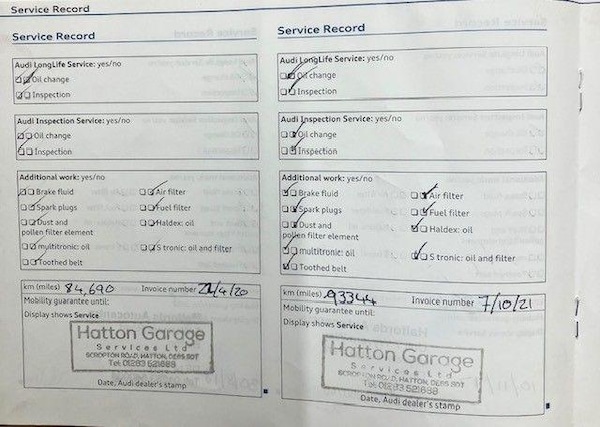 Service Record
Service Record
Audi LongLife Service: yes/no
Oil change
Inspection
Audi Inspection Service: yes/no
Oil change
Inspection
Additional work: yes/no
Brake fluid
Air filter
Spark plugs
Fuel filter
Dust and
pollen filter element
Haldex: oil
multitronic: oil
S tronic: oil and filter
Toothed belt
km (miles) 84,690 Invoice number 21/4/20
Mobility guarantee until:
Display shows Service
Hatton Garage
Services Ltd
SCROPTON ROAD, HATTON, DE65 5DT
Tel: 01283 521688
Date, Audi dealer's stamp
Service Record
Audi LongLife Service: yes/no
Oil change
Inspection
Audi Inspection Service: yes/no
Oil change
Inspection
Additional work: yes/no
Brake fluid
Air filter
Spark plugs
Fuel filter
Dust and
pollen filter element
Haldex: oil
multitronic: oil
S tronic: oil and filter
Toothed belt
km (miles) 93344 Invoice number 7/10/21
Mobility guarantee until:
Display shows Service
Hatton Garage
Services Ltd
SCROPTON ROAD, HATTON, DE65 5DT
Tel: 01283 521688
Date, Audi dealer's stamp